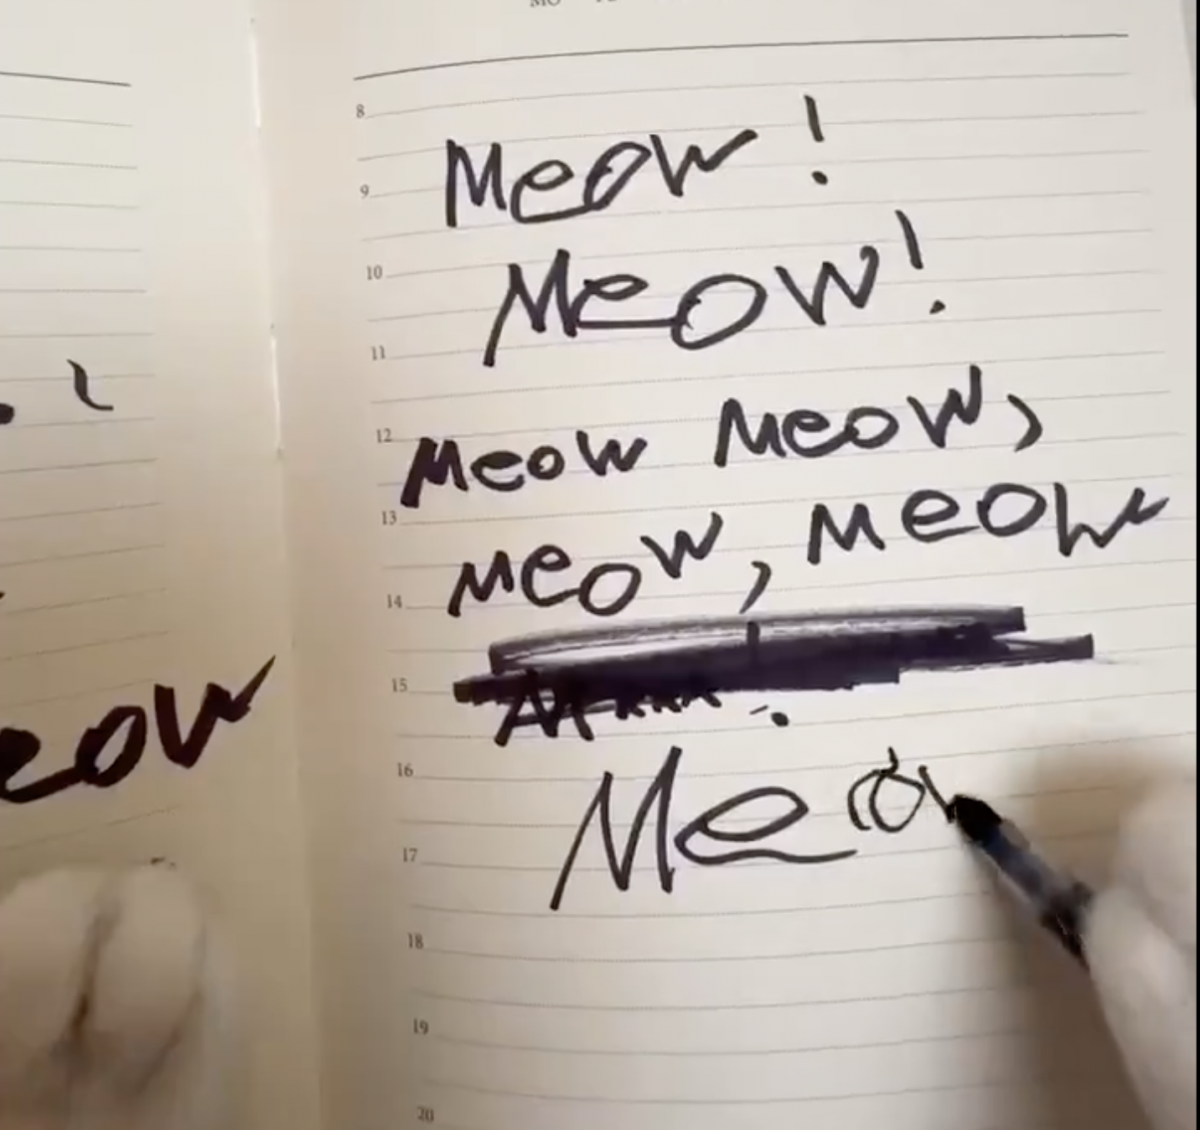 eow
8
Meow!
9
Meow!
10
11
12
Meow Meow,
13
Meow, Meow
14
15
16
Meow
17
18
19
20